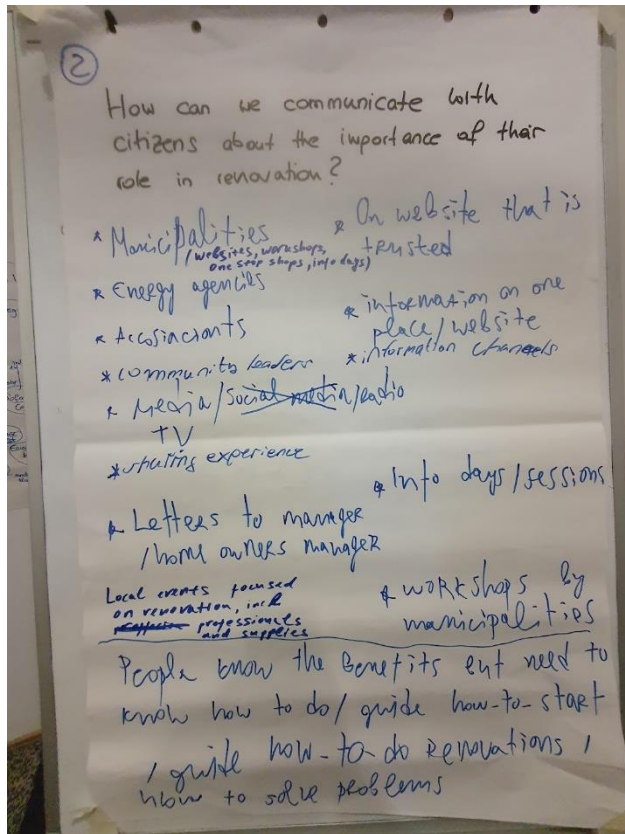 2
How can we communicate with
citizens about the importance of their
role in renovation?
* Municipalities
(websites, workshops,
one stop shops, info days)
* Energy agencies
* Accosiacionts
* community leaders
* Media/social media/radio
TV
* sharing experience
* Letters to manager
/home owners manager
Local events focused
on renovation, incl
professionals
and supplies
* On website that is
trusted
* information on one
place/website
* information channels
* Info days/sessions
* workshops by
municipalities
People know the benefits but need to
know how to do/ guide how-to-start
/ guide how-to-do renovations /
how to solve problems